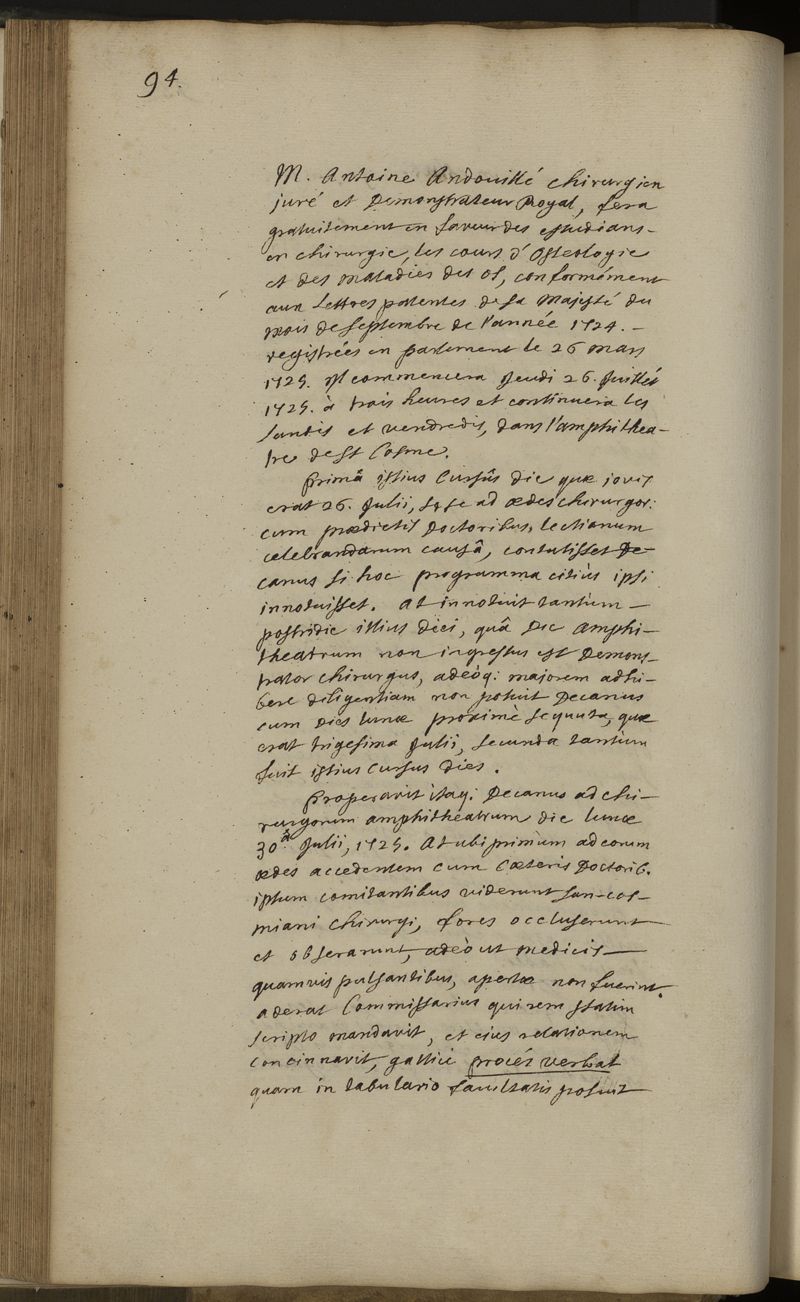 94.
M. Antoine Andouillé chirurgien
juré et Demonstrateur Royal, fera
gratuitement en faveur des estudians-
en chirurgie, les cours d'Osteologie
et des maladies des os, conformément
aux Lettres patentes de sa Majesté du
mois de septembre de l'année 1724. -
registrées en parlement le 26 mars
1725. Il commencera Jeudi 26. Juillet
1725. à trois heures et continuera les
lundis et vendredis, dans l'amphithea-
tre de St Cosme.
Primâ istius Cursûs die quæ jovis
erat 26. Julii, sese ad ædes chirurgor:
cum prædictis Doctoribus, lectionum
celebrandarum causâ, contulisset De-
canus si hoc programma citiùs ipsi
innotuisset. At innotuit tantùm -
postridie illius diei, quâ Die Amphi-
theatrum non ingressus est Demons-
trator chirurgus, adeòq: majorem adhi-
bere diligentiam non potuit Decanus
cum Dies lunæ proximè sequuta, quæ
erat trigesima Julii, secunda tantùm
fuit istius Cursus dies.
Properavit itaq: Decanus ad chi-
rurgorum amphitheatrum die lunæ
30â Julii, 1725. At ubi primùm ad eorum
ædes accedentem cum Cæteris Doctorib.
ipsum comitantibus viderunt San-cos-
miani chirurgi, fores occluserunt
et obserarunt, adeò ut medicis
quamvis pulsantibus, apertæ non fuerint.
aderat Commissarius qui rem statim
scripto mandavit, et ejus relationem
concinnavit, gallicè procés verbal
quam in tabulario facultatis posuit